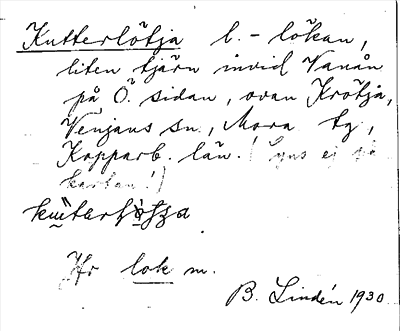 Kutterlötja l. - lökan,
liten tjärn invid Vanån
på Ö. sidan, ovan Krötjå,
Venjans sn., Mora tg,
Kopparb. län. (Syns ej på
kartan!)
Jfr lok m.
B. Lindén 1930